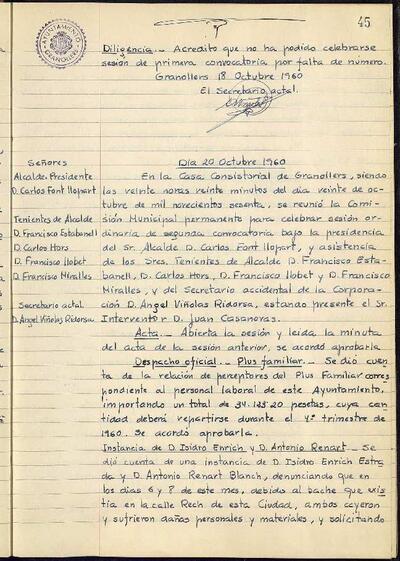 45
AYUNTAMIENTO
GRANOLLERS
Diligencia.- Acredito que no ha podido celebrarse
sesión de primera convocatoria por falta de número.
Granollers 18 Octubre 1960
El Secretario actal.
Señores
Alcalde-Presidente
D. Carlos Font llopart
Tenientes de Alcalde
D. Francisco Estabanell
D. Carlos Hors
D. Francisco llobet
D. Francisco Miralles
Secretario actal
D. Angel Viñolas Ridorsa
Dia 20 Octubre 1960
En la Casa Consistorial de Granollers, siendo
las veinte horas veinte minutos del dia veinte de oc-
tubre de mil novecientos sesenta, se reunió la Comi-
sión Municipal permanente para celebrar sesión or-
dinaria de segunda convocatoria bajo la presidencia
del Sr. Alcalde D. Carlos Font llopart, y asistencia
de los Sres. Tenientes de Alcalde D. Francisco Esta-
banell, D. Carlos Hors, D. Francisco llobet y D. Francisco
Miralles, y del Secretario accidental de la Corpora-
ción D. Angel Viñolas Ridorsa, estando presente el Sr.
Interventor D. Juan Casanovas.
Acta.- Abierta la sesión y leida la minuta
del acta de la sesión anterior, se acordó aprobarla
Despacho oficial.- Plus familiar.- Se dió cuen-
ta de la relación de perceptores del Plus Familiar corres
pondiente al personal laboral de este Ayuntamiento,
importando un total de 34.123.20 pesetas, cuya can-
tidad deberá repartirse durante el 4º trimestre de
1960. Se acordó aprobarla.
Instancia de D. Isidro Enrich y D. Antonio Renart.- Se
dió cuenta de una instancia de D. Isidro Enrich Estra
da y D. Antonio Renart Blanch, denunciando que en
los dias 6 y 8 de este mes, debido al bache que exis
tia en la calle Rech de esta Ciudad, ambos cayeron
y sufrieron daños personales y materiales, y solicitando